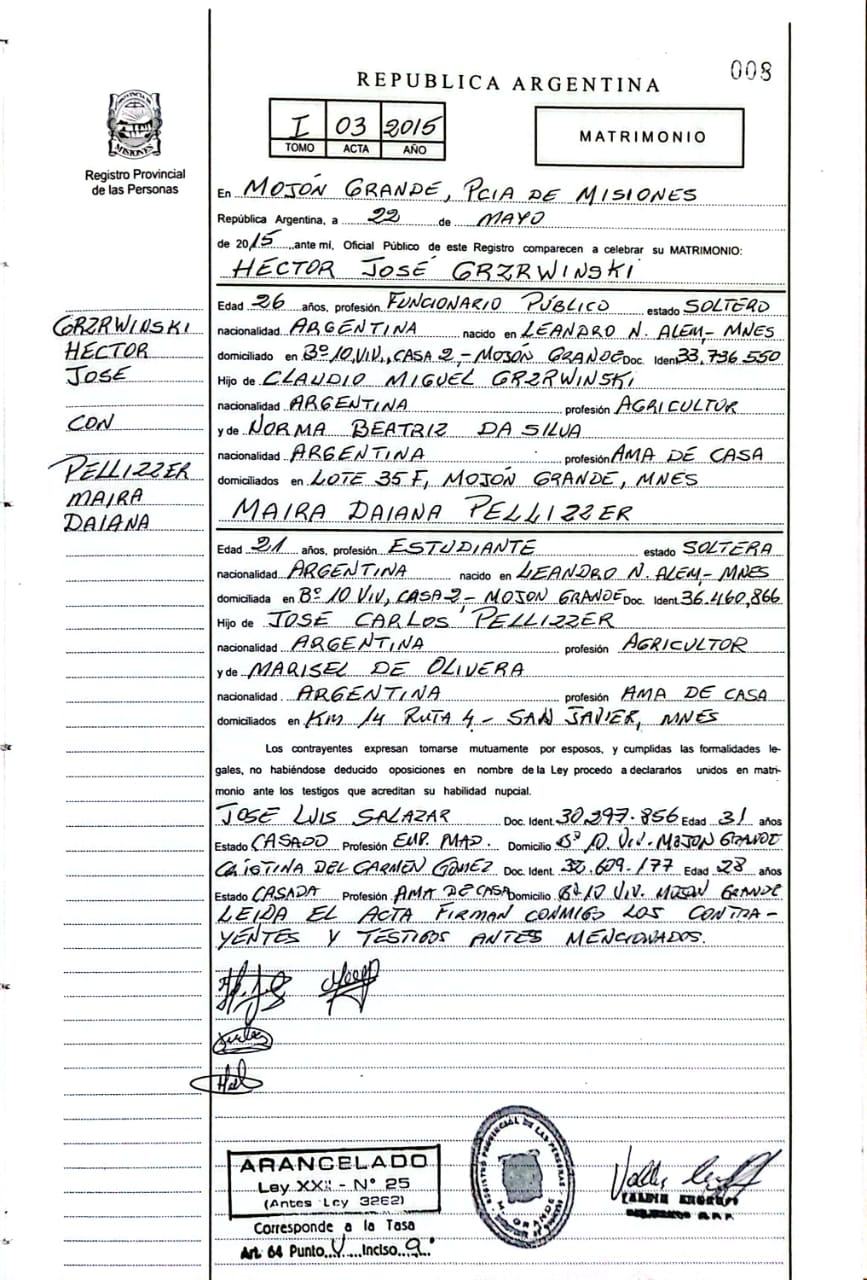 008
REPUBLICA ARGENTINA
I 03 2015
TOMO ACTA AÑO
MATRIMONIO
PROVINCIA DE MISIONES
Registro Provincial
de las Personas
En MOJÓN GRANDE, PCIA DE MISIONES
República Argentina, a 22 de MAYO
de 2015 ante mí, Oficial Público de este Registro comparecen a celebrar su MATRIMONIO:
HÉCTOR JOSÉ GRZRWINSKI
Edad 26 años, profesión FUNCIONARIO PÚBLICO estado SOLTERO
nacionalidad ARGENTINA nacido en LEANDRO N. ALEM- MNES
domiciliado en Bº 10 VIV., CASA 2,- MOJÓN GRANDE Doc. Ident. 33.736.550
Hijo de CLAUDIO MIGUEL GRZRWINSKI
nacionalidad ARGENTINA profesión AGRICULTOR
y de NORMA BEATRIZ DA SILVA
nacionalidad ARGENTINA profesión AMA DE CASA
domiciliados en LOTE 35 F, MOJÓN GRANDE, MNES
MAIRA DAIANA PELLIZZER
Edad 21 años, profesión ESTUDIANTE estado SOLTERA
nacionalidad ARGENTINA nacido en LEANDRO N. ALEM- MNES
domiciliada en Bº 10 VIV, CASA 2- MOJON GRANDE Doc. Ident. 36.460,866
Hijo de JOSÉ CARLOS PELLIZZER
nacionalidad ARGENTINA profesión AGRICULTOR
y de MARISEL DE OLIVERA
nacionalidad ARGENTINA profesión AMA DE CASA
domiciliados en KM 14 RUTA 4 - SAN JAVIER, MNES
GRZRWINSKI
HÉCTOR
JOSÉ
CON
PELLIZZER
MAIRA
DAIANA
Los contrayentes expresan tomarse mutuamente por esposos, y cumplidas las formalidades le-
gales, no habiéndose deducido oposiciones en nombre de la Ley procedo a declararlos unidos en matri-
monio ante los testigos que acreditan su habilidad nupcial.
JOSÉ LUIS SALAZAR Doc. Ident. 30.297.856 Edad 31 años
Estado CASADO Profesión EMP. MAD. Domicilio Bº 10 VIV.- MOJON GRANDE
CRISTINA DEL CARMEN GÓMEZ Doc. Ident. .609.177 Edad 28 años
Estado CASADA Profesión AMA DE CASA Domicilio Bº 10 VIV. MOJON GRANDE
LEIDA EL ACTA FIRMAN CONMIGO LOS CONTRA-
YENTES Y TESTIGOS ANTES MENCIONADOS.
ARANCELADO
Ley XXII - Nº 25
(Antes Ley 3262)
Corresponde a la Tasa
Art. 64 Punto V Inciso a
REGISTRO PROVINCIAL DE LAS PERSONAS
M. GRANDE